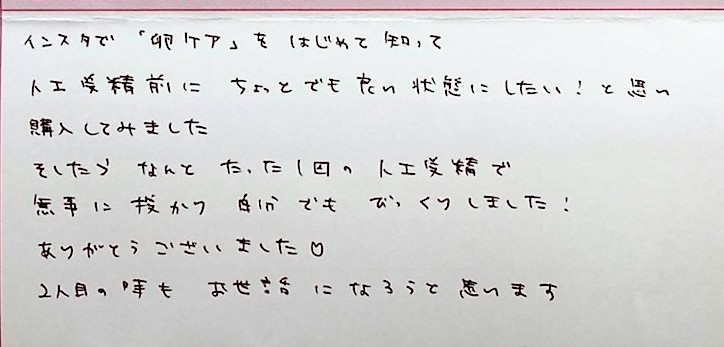 インスタで「卵ケア」をはじめて知って
人工受精前に ちょっとでも良い状態にしたい！と思い
購入してみました
そしたら なんと たった1回の人工受精で
無事に授かり 自分でも びっくりしました！
ありがとうございました♡
2人目の時も お世話になろうと思います